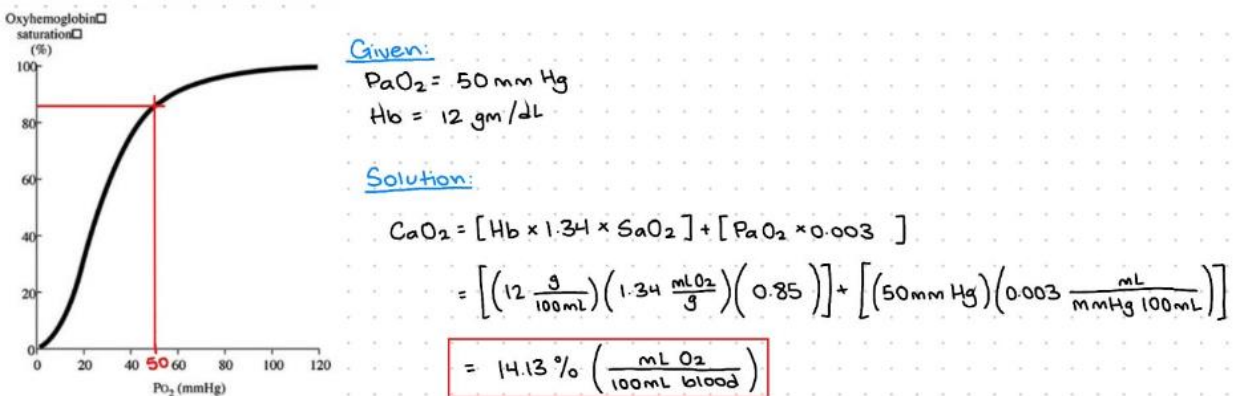 Oxyhemoglobin□
saturation□
(%)
100
80
60
40
20
0
0 20 40 50 60 80 100 120
PO₂ (mmHg)
Given:
PaO₂ = 50 mm Hg
Hb = 12 gm/dL
Solution:
CaO₂ = [Hb × 1.34 × SaO₂] + [PaO₂ × 0.003 ]
= [(12 g/100mL)(1.34 mLO₂/g)(0.85)] + [(50mm Hg)(0.003 mL/mmHg 100mL)]
= 14.13 % (mL O₂/100mL blood)